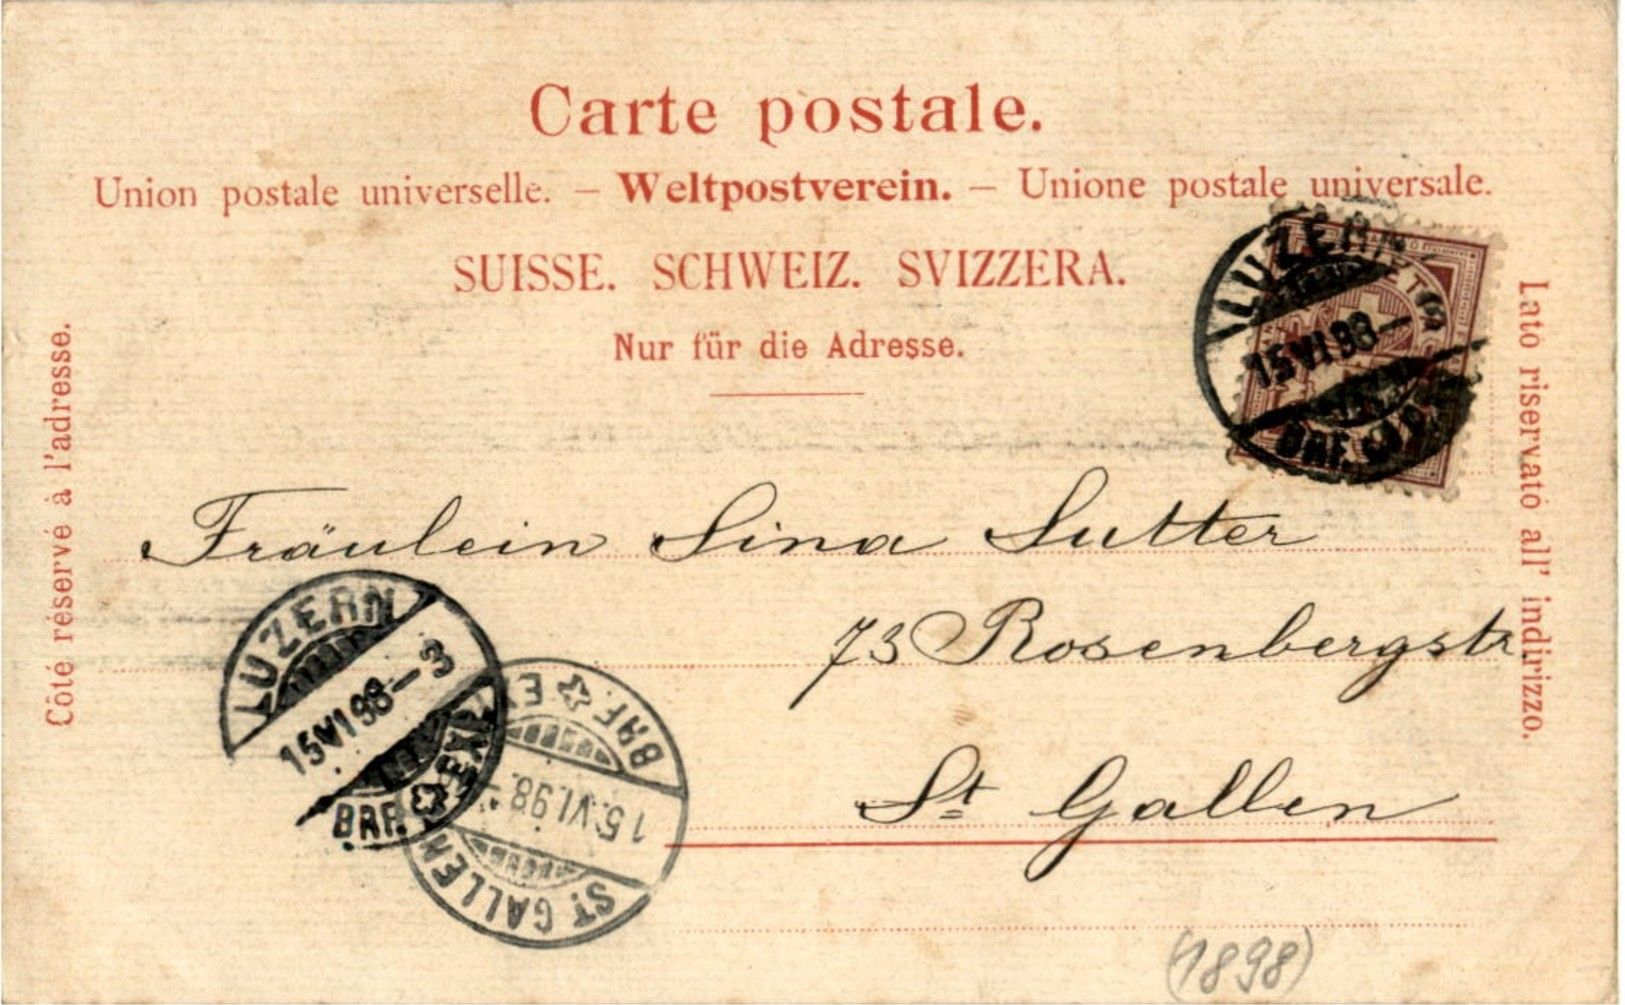 Carte postale.
Union postale universelle. — Weltpostverein. — Unione postale universale.
SUISSE. SCHWEIZ. SVIZZERA.
Nur für die Adresse.
Côté réservé à l'adresse.
Lato riservato all' indirizzo.
LUZERN
15 VI 98 –
BRF.
Fräulein Sina Sutter
73 Rosenbergstr.
St Gallen
LUZERN
15 VI 98 – 3
BRF. ☆ EXP.
BRF. ☆ E
15. VI. 98. –
ST. GALLEN
(1898)